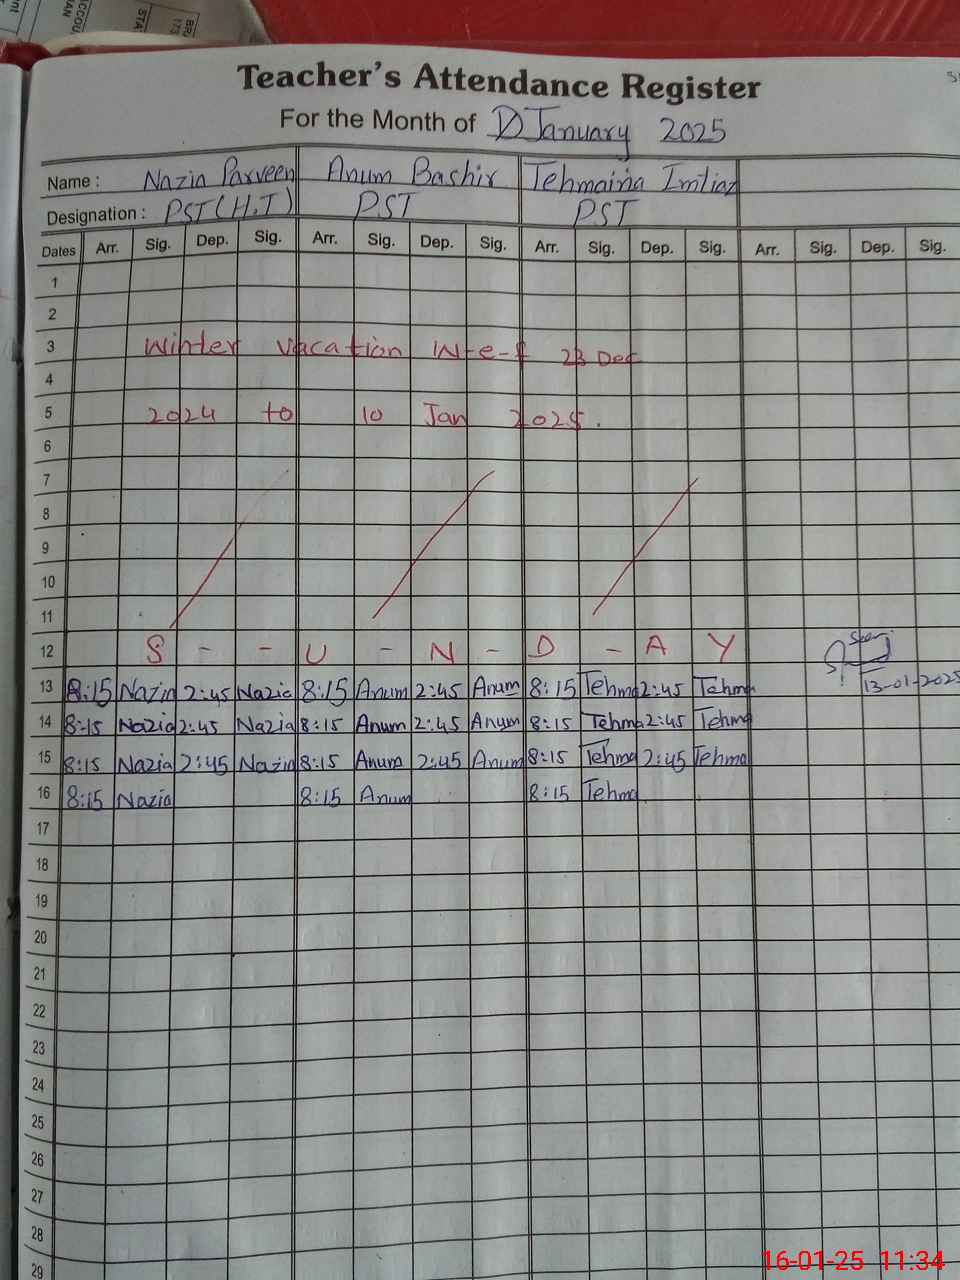 Teacher's Attendance Register
For the Month of January 2025
Name : Nazia Parveen Anum Bashir Tehmaina Imtiaz
Designation : PST (H.T) PST PST
Dates Arr. Sig. Dep. Sig. Arr. Sig. Dep. Sig. Arr. Sig. Dep. Sig. Arr. Sig. Dep. Sig.
1
2
3 Winter vacation W-e-f 23 Dec
4
5 2024 to 10 Jan 2025.
6
7
8
9
10
11
12 S - - U - N - D - A Y
13 8:15 Nazia 2:45 Nazia 8:15 Anum 2:45 Anum 8:15 Tehma 2:45 Tehma 13-01-2025
14 8:15 Nazia 2:45 Nazia 8:15 Anum 2:45 Anum 8:15 Tehma 2:45 Tehma
15 8:15 Nazia 2:45 Nazia 8:15 Anum 2:45 Anum 8:15 Tehma 2:45 Tehma
16 8:15 Nazia 8:15 Anum 8:15 Tehma
17
18
19
20
21
22
23
24
25
26
27
28
29
16-01-25 11:34